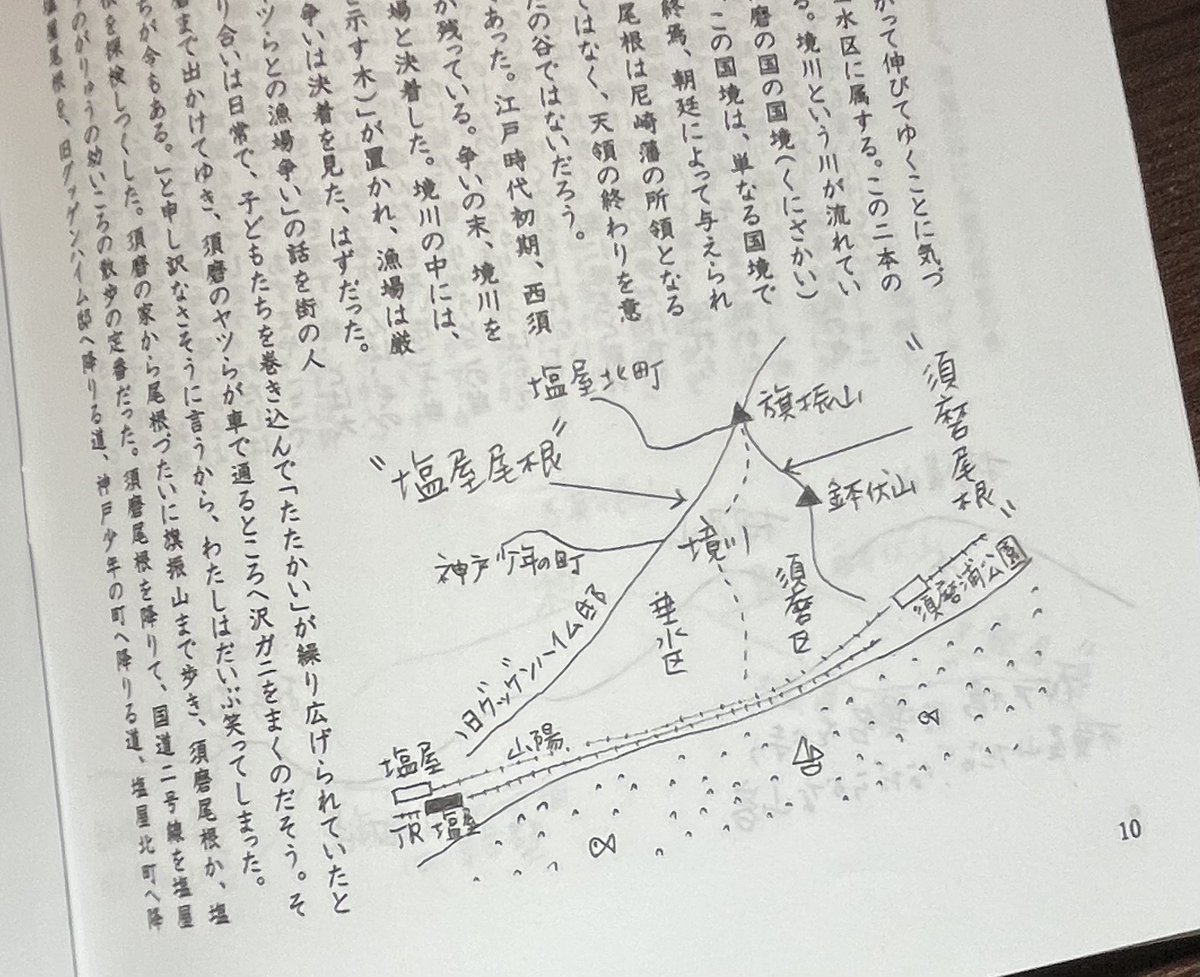 がって伸びてゆくことに気づ
水区に属する。この二本の
る。境川という川が流れてい
磨の国の国境(くにさかい)
この国境は、単なる国境で
終焉、朝廷によって与えられ
尾根は尼崎藩の所領となる
ではなく、天領の終わりを意
たの谷ではないだろう。
あった。江戸時代初期、西須
が残っている。争いの末、境川を
場と決着した。境川の中には、
と示す木)」が置かれ、漁場は厳
争いは決着を見た、はずだった。
ツらとの漁場争い」の話を街の人
り合いは日常で、子どもたちを巻き込んで「たたかい」が繰り広げられていたと
まで出かけてゆき、須磨のヤツらが車で通るところへ沢ガニをまくのだそう。そ
ちが今もある。」と申し訳なさそうに言うから、わたしはだいぶ笑ってしまった。
を探検しつくした。須磨の家から尾根づたいに旗振山まで歩き、須磨尾根か、塩
のがりゅうの幼いころの散歩の定番だった。須磨尾根を降りて、国道二号線を塩屋
屋尾根を、旧グッゲンハイム邸へ降りる道、神戸少年の町へ降りる道、塩屋北町へ降
"須磨尾根"
塩屋北町
旗振山
"塩屋尾根"
鉢伏山
神戸少年の町
境川
須磨区
垂水区
須磨浦公園
旧グッゲンハイム邸
山陽
塩屋
JR 塩屋
10